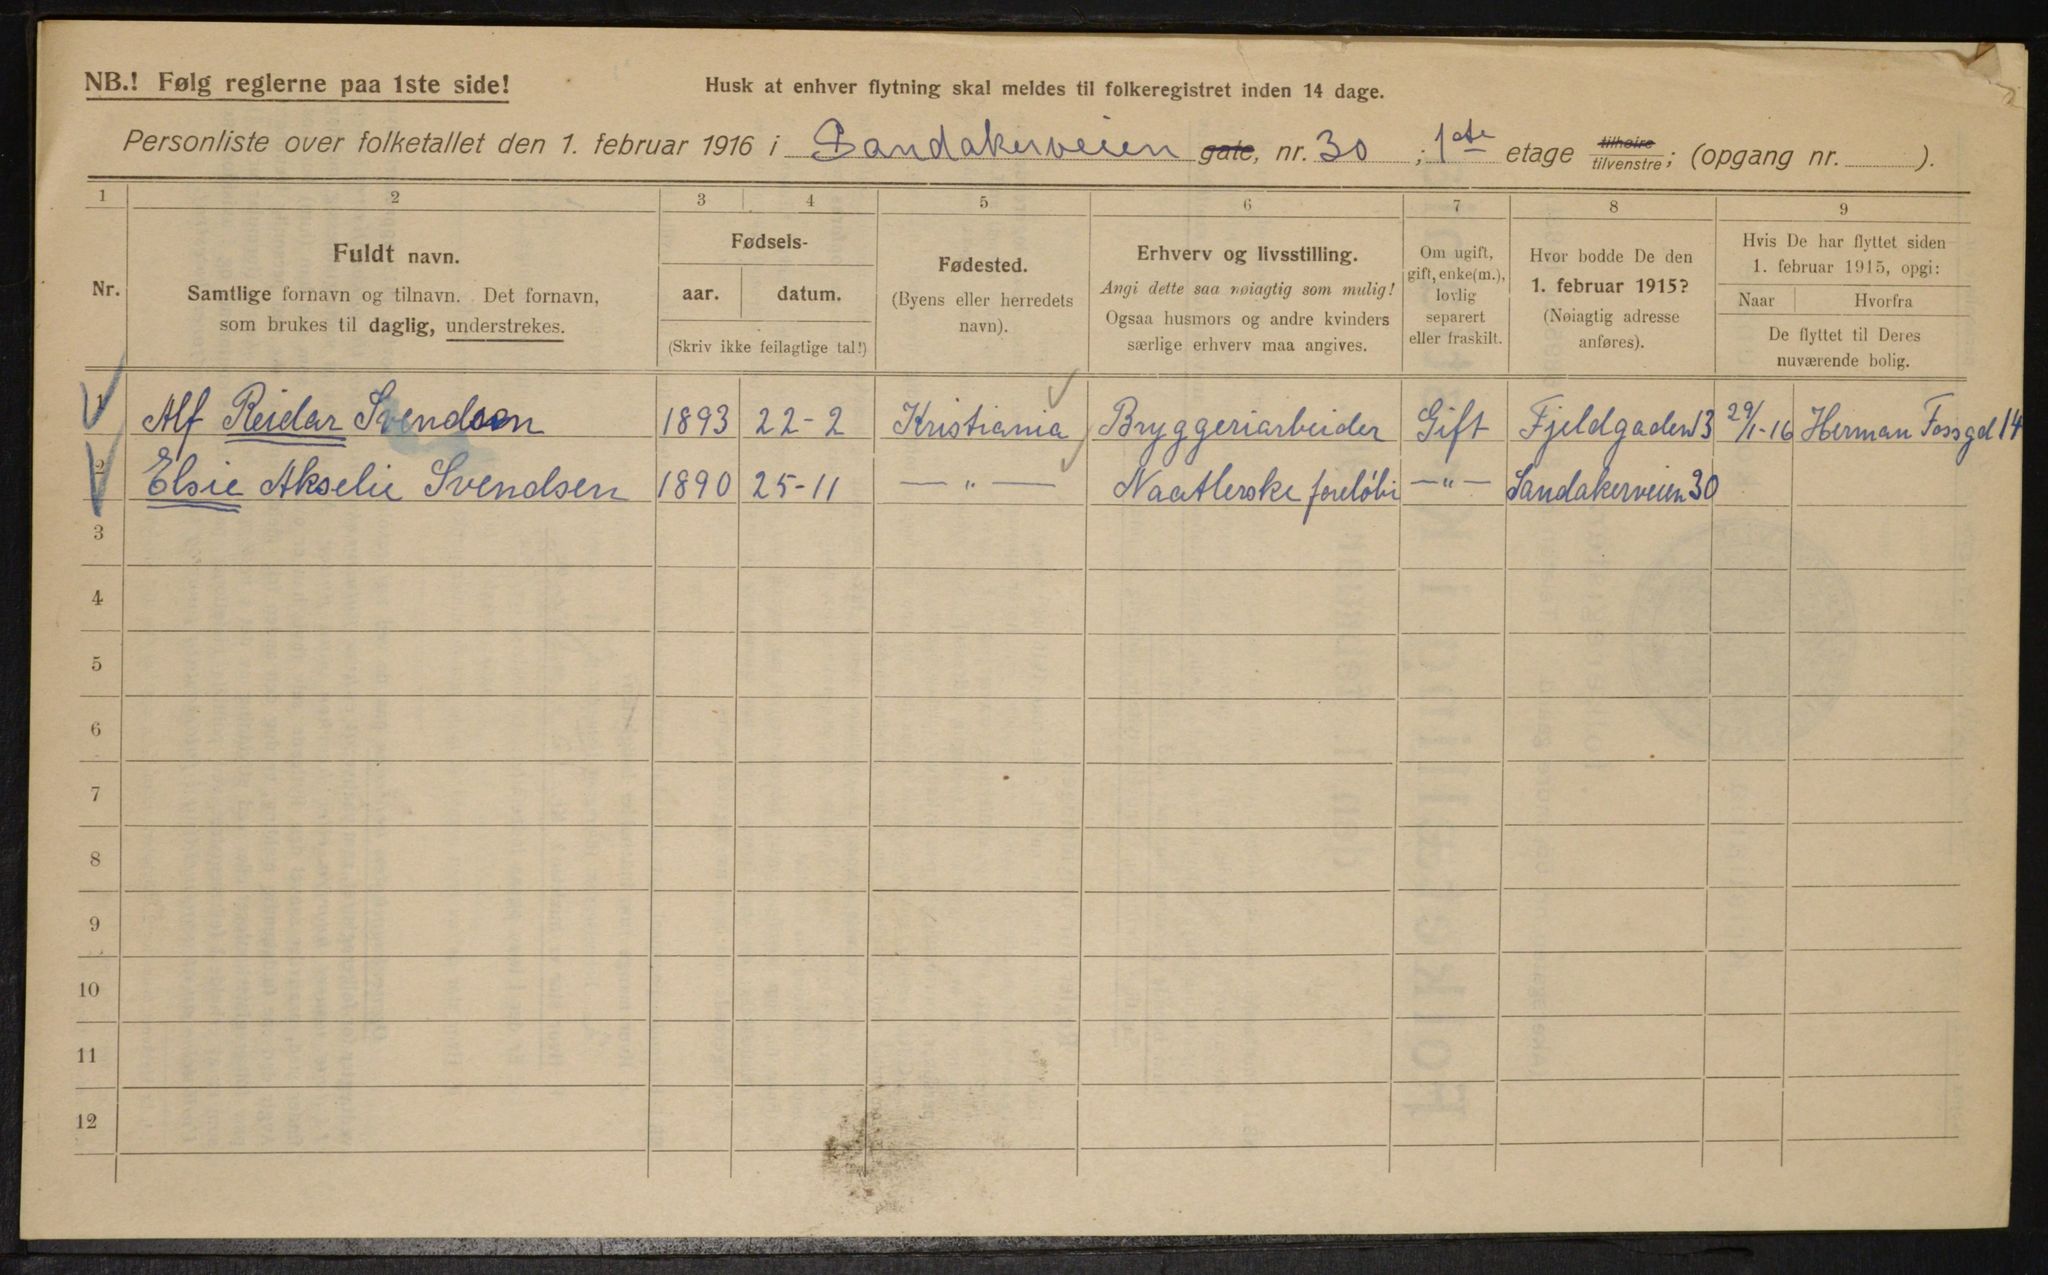 NB.! Følg reglerne paa 1ste side!
Husk at enhver flytning skal meldes til folkeregistret inden 14 dage.
Personliste over folketallet den 1. februar 1916 i Sandakerveien gate, nr. 30 ; 1ste etage tilhøire tilvenstre; (opgang nr. ).
1 2 3 4 5 6 7 8 9
Nr.
Fuldt navn.
Samtlige fornavn og tilnavn. Det fornavn,
som brukes til daglig, understrekes.
Fødsels-
aar. datum.
(Skriv ikke feilagtige tal!)
Fødested.
(Byens eller herredets
navn).
Erhverv og livsstilling.
Angi dette saa nøiagtig som mulig!
Ogsaa husmors og andre kvinders
særlige erhverv maa angives.
Om ugift,
gift, enke(m.),
lovlig
separert
eller fraskilt.
Hvor bodde De den
1. februar 1915?
(Nøiagtig adresse
anføres).
Hvis De har flyttet siden
1. februar 1915, opgi:
Naar Hvorfra
De flyttet til Deres
nuværende bolig.
1 Alf Reidar Svendsen 1893 22-2 Kristiania Bryggeriarbeider Gift Fjeldgaden 13 29/1-16 Herman Fossgd 14
2 Elsie Akselie Svendsen 1890 25-11 — " — foreløbi — " — Sandakerveien 30
3
4
5
6
7
8
9
10
11
12